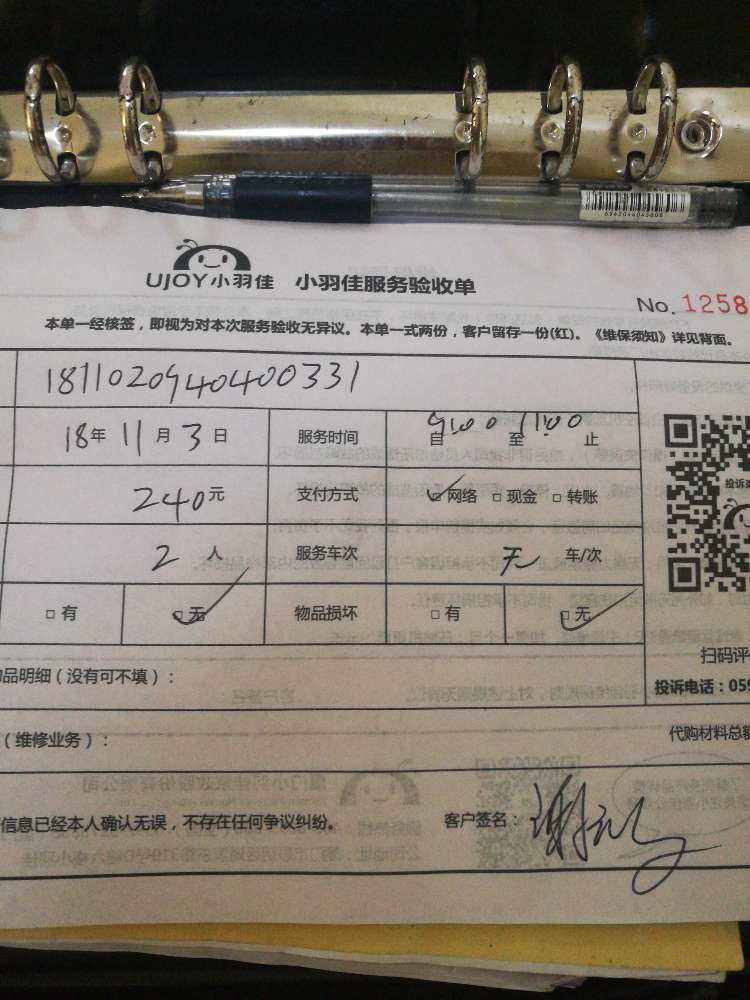 6942044043605
UJOY小羽佳 小羽佳服务验收单
No. 1258
本单一经核签，即视为对本次服务验收无异议。本单一式两份，客户留存一份(红)。《维保须知》详见背面。
1811020940400331
18年 11 月 3 日 服务时间 自 9:00 至 11:00 止
240元 支付方式 网络 □ 现金 □ 转账
2 人 服务车次 无 车/次
□ 有 □ 无 物品损坏 □ 有 □ 无
扫码评
品明细（没有可不填）：
投诉电话：059
（维修业务）：
代购材料总额
信息已经本人确认无误，不存在任何争议纠纷。 客户签名：